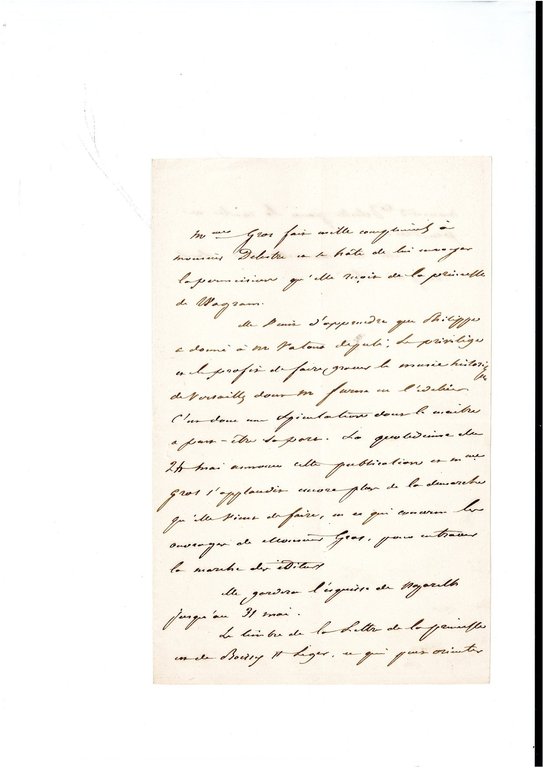 mme Gros fait mille compliments à
monsieur Delestre et se hâte de lui envoyer
la permission qu'elle reçoit de la princesse
de Wagram.
Elle vient d'apprendre que Philippe
a donné à Mr Vatout député, le privilège
et le profit de faire graver le musée historique
de Versailles dont Mr furne est l'éditeur
C'est donc une spéculation dont le maître
a peut-être sa part. La quotidienne du
24 mai annonce cette publication et mme
Gros s'applaudit encore plus de la démarche
qu'elle vient de faire, en ce qui concerne les
ouvrages de Monsieur Gros, pour entraver
la marche des éditeurs
Elle gardera l'esquisse de Nazareth
jusqu'au 31 mai.
Le timbre de la lettre de la princesse
est de Boissy St Léger, ce qui peut orienter